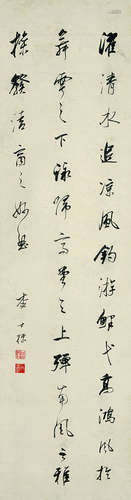 濯清水追涼風釣游鯉弋高鴻風於
舞雩之下詠歸高堂之上彈南風之雅
操發清商之妙曲
李士